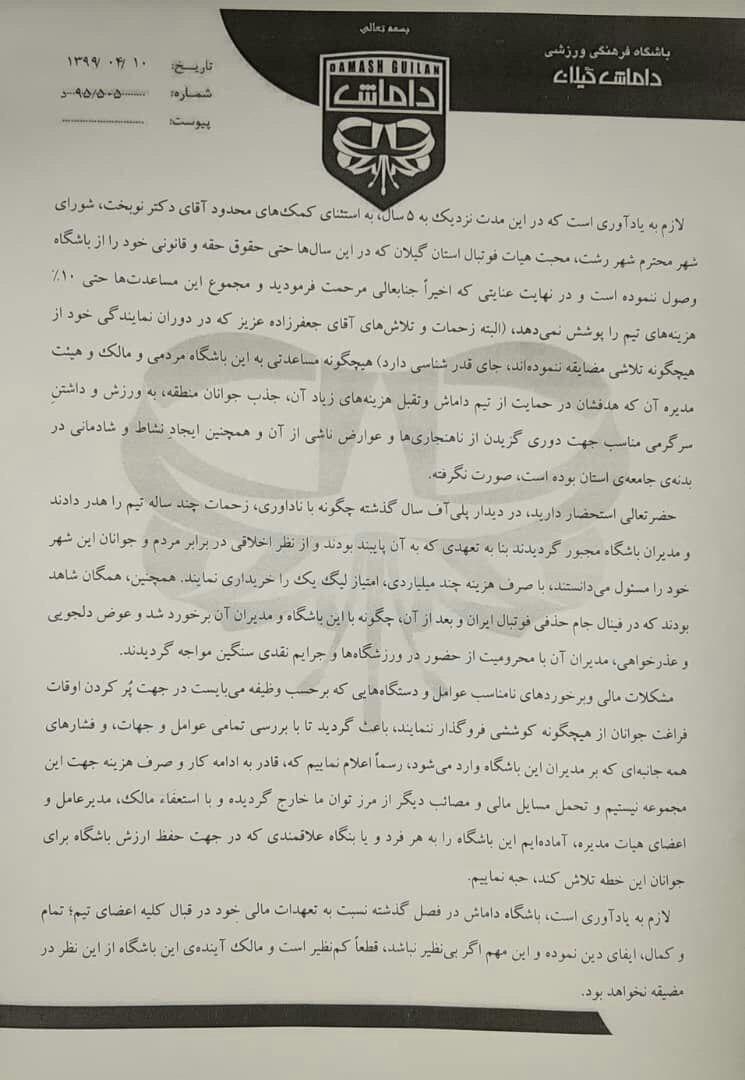 بسمه تعالی
باشگاه فرهنگی ورزشی
داماش گیلان
DAMASH GUILAN
داماش
تاریخ: ۱۳۹۹/۰۴/۱۰
شماره:
پیوست:
لازم به یادآوری است که در این مدت نزدیک به ۵ سال، به استثنای کمک‌های محدود آقای دکتر نوبخت، شورای
شهر محترم شهر رشت، محبت هیات فوتبال استان گیلان که در این سال‌ها حتی حقوق حقه و قانونی خود را از باشگاه
وصول ننموده است و در نهایت عنایتی که اخیراً جنابعالی مرحمت فرمودید و مجموع این مساعدت‌ها حتی ۱۰٪
هزینه‌های تیم را پوشش نمی‌دهد، (البته زحمات و تلاش‌های آقای جعفرزاده عزیز که در دوران نمایندگی خود از
هیچگونه تلاشی مضایقه ننموده‌اند، جای قدر شناسی دارد) هیچگونه مساعدتی به این باشگاه مردمی و مالک و هیئت
مدیره آن که هدفشان در حمایت از تیم داماش وتقبل هزینه‌های زیاد آن، جذب جوانان منطقه، به ورزش و داشتنِ
سرگرمی مناسب جهت دوری گزیدن از ناهنجاری‌ها و عوارض ناشی از آن و همچنین ایجادِ نشاط و شادمانی در
بدنه‌ی جامعه‌ی استان بوده است، صورت نگرفته.
حضرتعالی استحضار دارید، در دیدار پلی‌آف سال گذشته چگونه با ناداوری، زحمات چند ساله تیم را هدر دادند
و مدیران باشگاه مجبور گردیدند بنا به تعهدی که به آن پایبند بودند و از نظر اخلاقی در برابر مردم و جوانان این شهر
خود را مسئول می‌دانستند، با صرف هزینه چند میلیاردی، امتیاز لیگ یک را خریداری نمایند. همچنین، همگان شاهد
بودند که در فینال جام حذفی فوتبال ایران و بعد از آن، چگونه با این باشگاه و مدیران آن برخورد شد و عوض دلجویی
و عذرخواهی، مدیران آن با محرومیت از حضور در ورزشگاه‌ها و جرایم نقدی سنگین مواجه گردیدند.
مشکلات مالی وبرخوردهای نامناسب عوامل و دستگاه‌هایی که برحسب وظیفه می‌بایست در جهت پُر کردن اوقات
فراغت جوانان از هیچگونه کوششی فروگذار ننمایند، باعث گردید تا با بررسی تمامی عوامل و جهات، و فشارهای
همه جانبه‌ای که بر مدیران این باشگاه وارد می‌شود، رسماً اعلام نماییم که، قادر به ادامه کار و صرف هزینه جهت این
مجموعه نیستیم و تحمل مسایل مالی و مصائب دیگر از مرز توان ما خارج گردیده و با استعفاء مالک، مدیرعامل و
اعضای هیات مدیره، آماده‌ایم این باشگاه را به هر فرد و یا بنگاه علاقمندی که در جهت حفظ ارزش باشگاه برای
جوانان این خطه تلاش کند، حبه نماییم.
لازم به یادآوری است، باشگاه داماش در فصل گذشته نسبت به تعهدات مالی خود در قبال کلیه اعضای تیم؛ تمام
و کمال، ایفای دین نموده و این مهم اگر بی‌نظیر نباشد، قطعاً کم‌نظیر است و مالک آینده‌ی این باشگاه از این نظر در
مضیقه نخواهد بود.